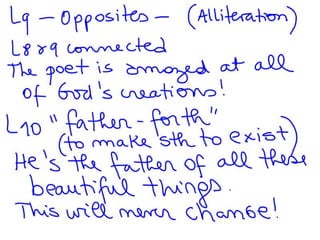 L9 - Opposites - (Alliteration)
L8 & 9 connected
The poet is amazed at all
of God's creations!
L10 "father-forth"
(to make sth to exist)
He's the father of all these
beautiful things.
This will never change!